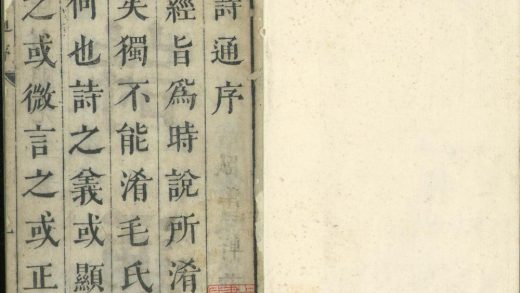 詩通序
經旨爲時說所淆
矣獨不能淆毛氏
何也詩之義或顯
之或微言之或正